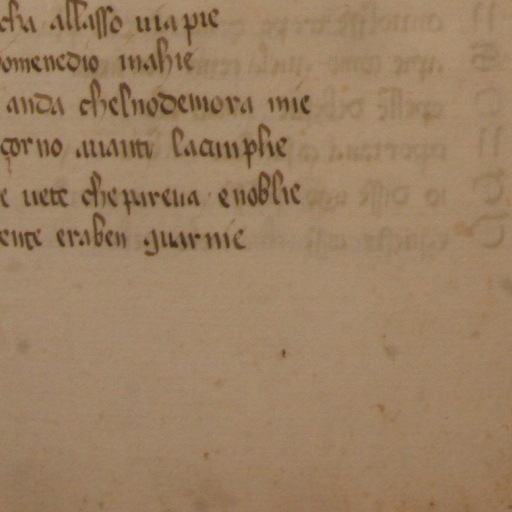 cha allasso uia pie
omenedio mahie
anda chelnodemora mie
corno auanti lacinphe
e uete che pareua enoblie
ente eraben guarnie